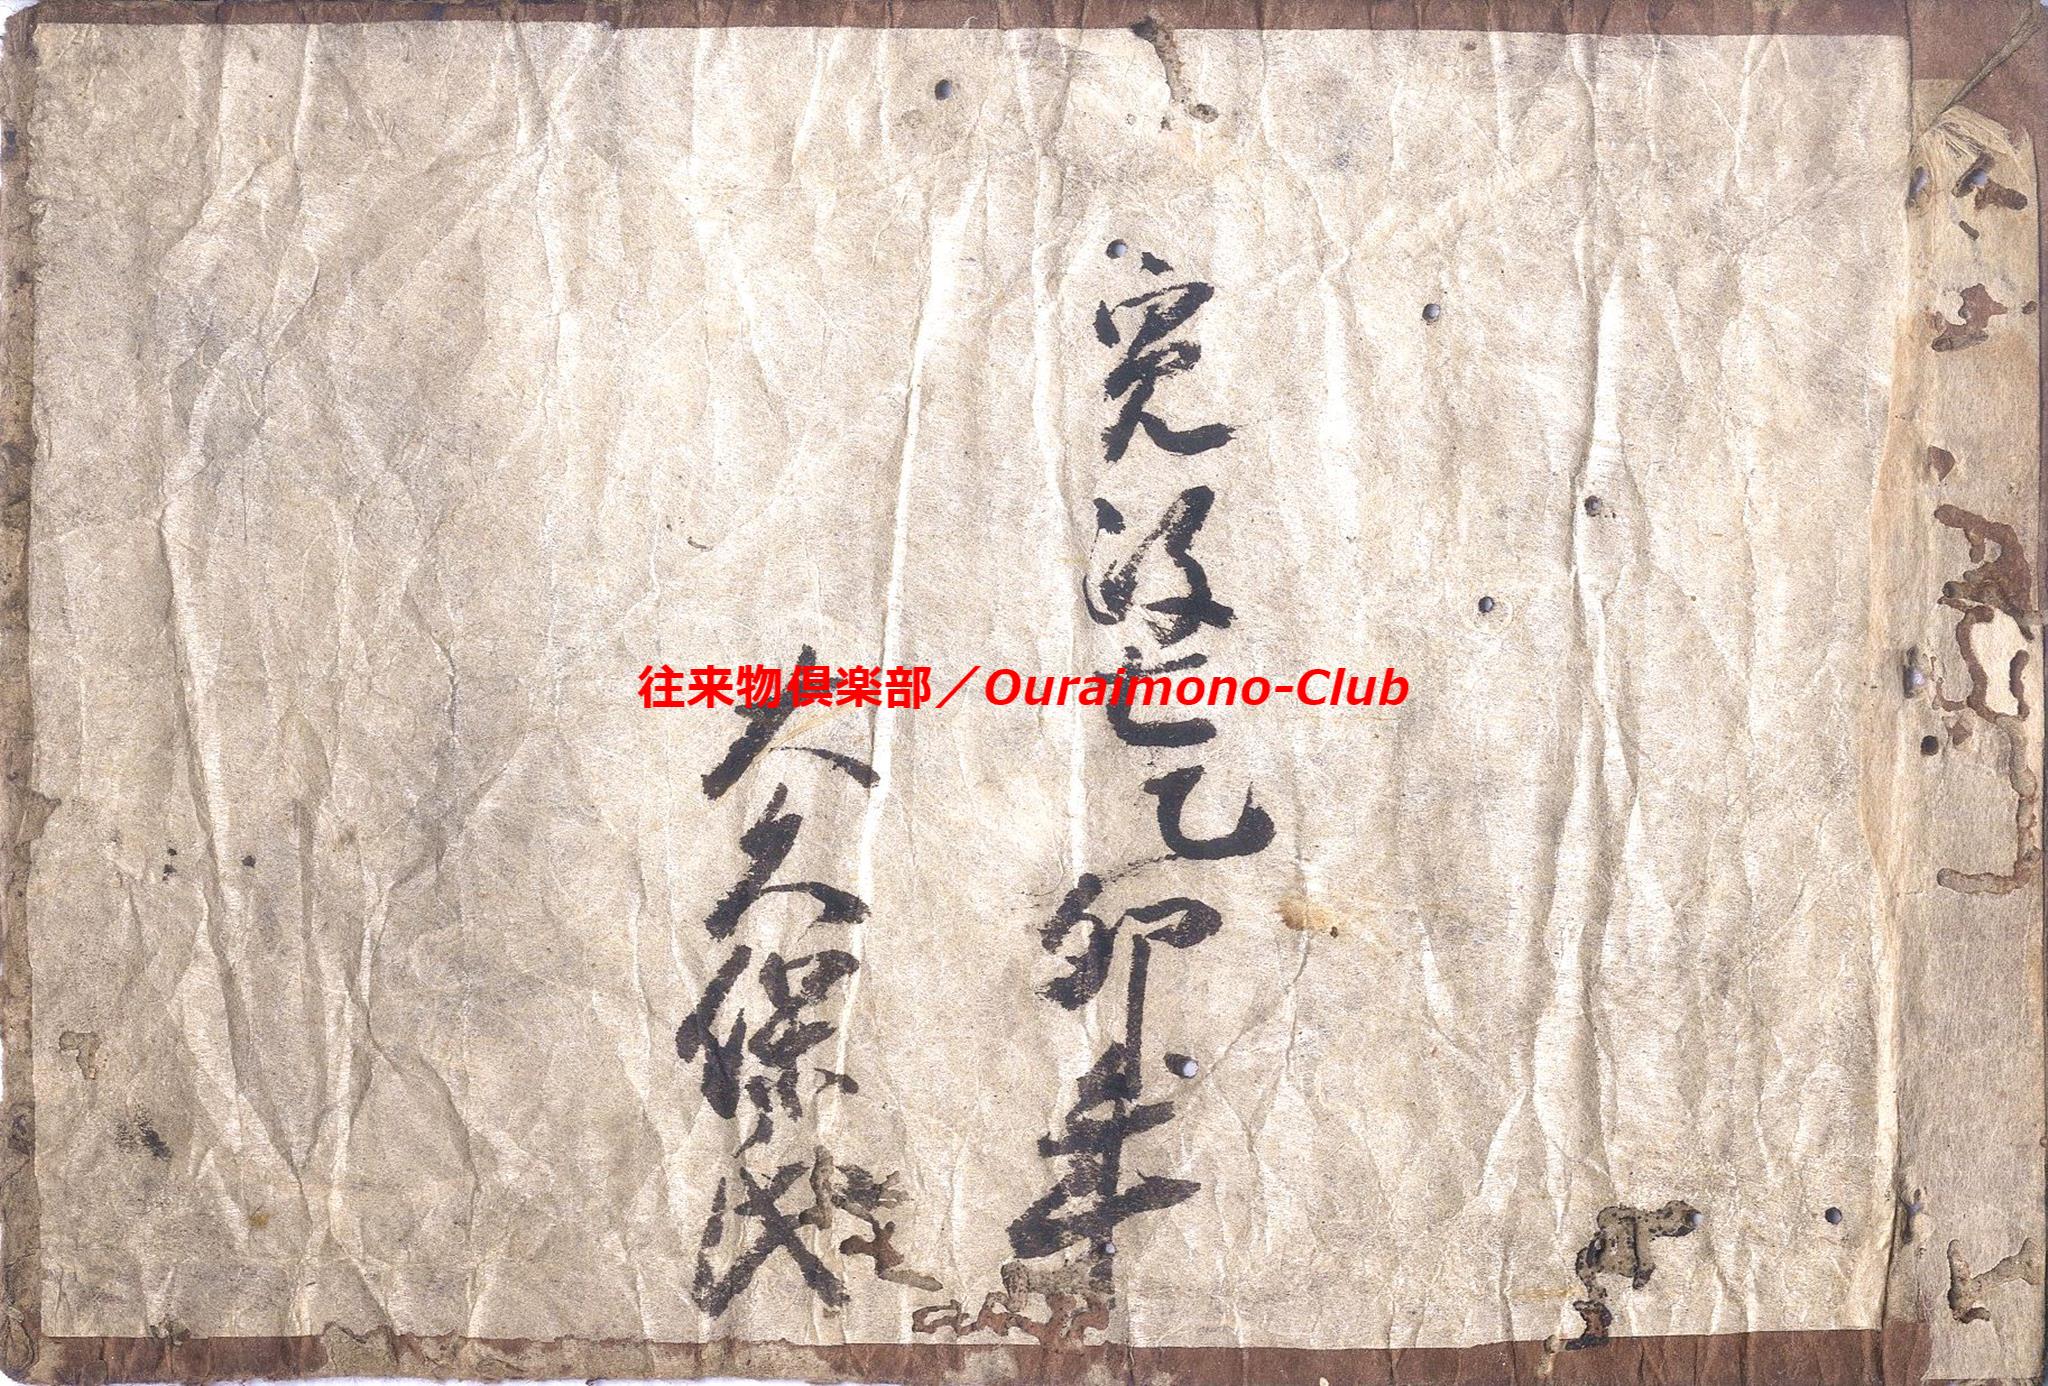 寛政七乙卯年
大久保氏
往来物倶楽部／Ouraimono-Club